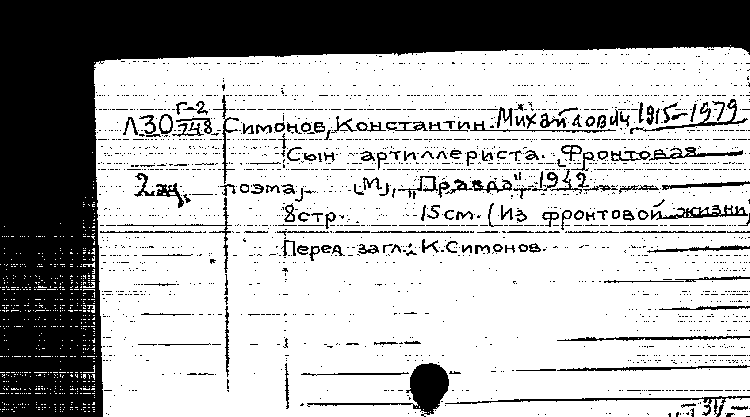 Л30 Г-2/748 Симонов, Константин Михайлович, 1915-1979
Сын артиллериста. [Фронтовая
2 эк. поэма] [М], "Правда", 1942
8 стр. 15 см. (Из фронтовой жизни)
Перед загл.: К. Симонов.